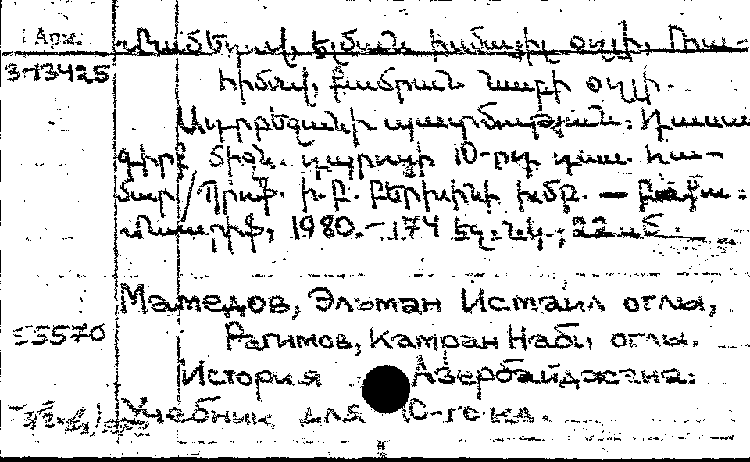 Арм.
Մամեդով, Էլման Իսմայիլ օղլի, Ռա-
3-13425
հիմով, Քամրան Նաբի օղլի.
Ադրբեջանի պատմություն: Դասա
գիրք միջն. դպրոցի 10-րդ դաս. հա-
մար / Պրոֆ. խմբ. — Բաքու:
Մաարիֆ, 1980. – 174 էջ. նկ.; 22 սմ.
Мамедов, Эльман Исмаил оглы,
55570
Рагимов, Камран Наби оглы.
История Азербайджана:
Учебник для 10-го кл.